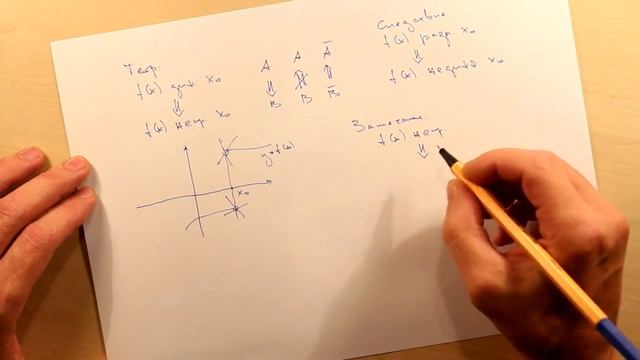 Теор.
f(x) диф. x₀
⇓
f(x) непр. x₀
A A Ā
⇓ ⇑ ⇑
B B B̄
y=f(x)
x₀
Следствие.
f(x) разр. x₀
⇓
f(x) недифф. x₀.
Замечание.
f(x) непр.
⇓